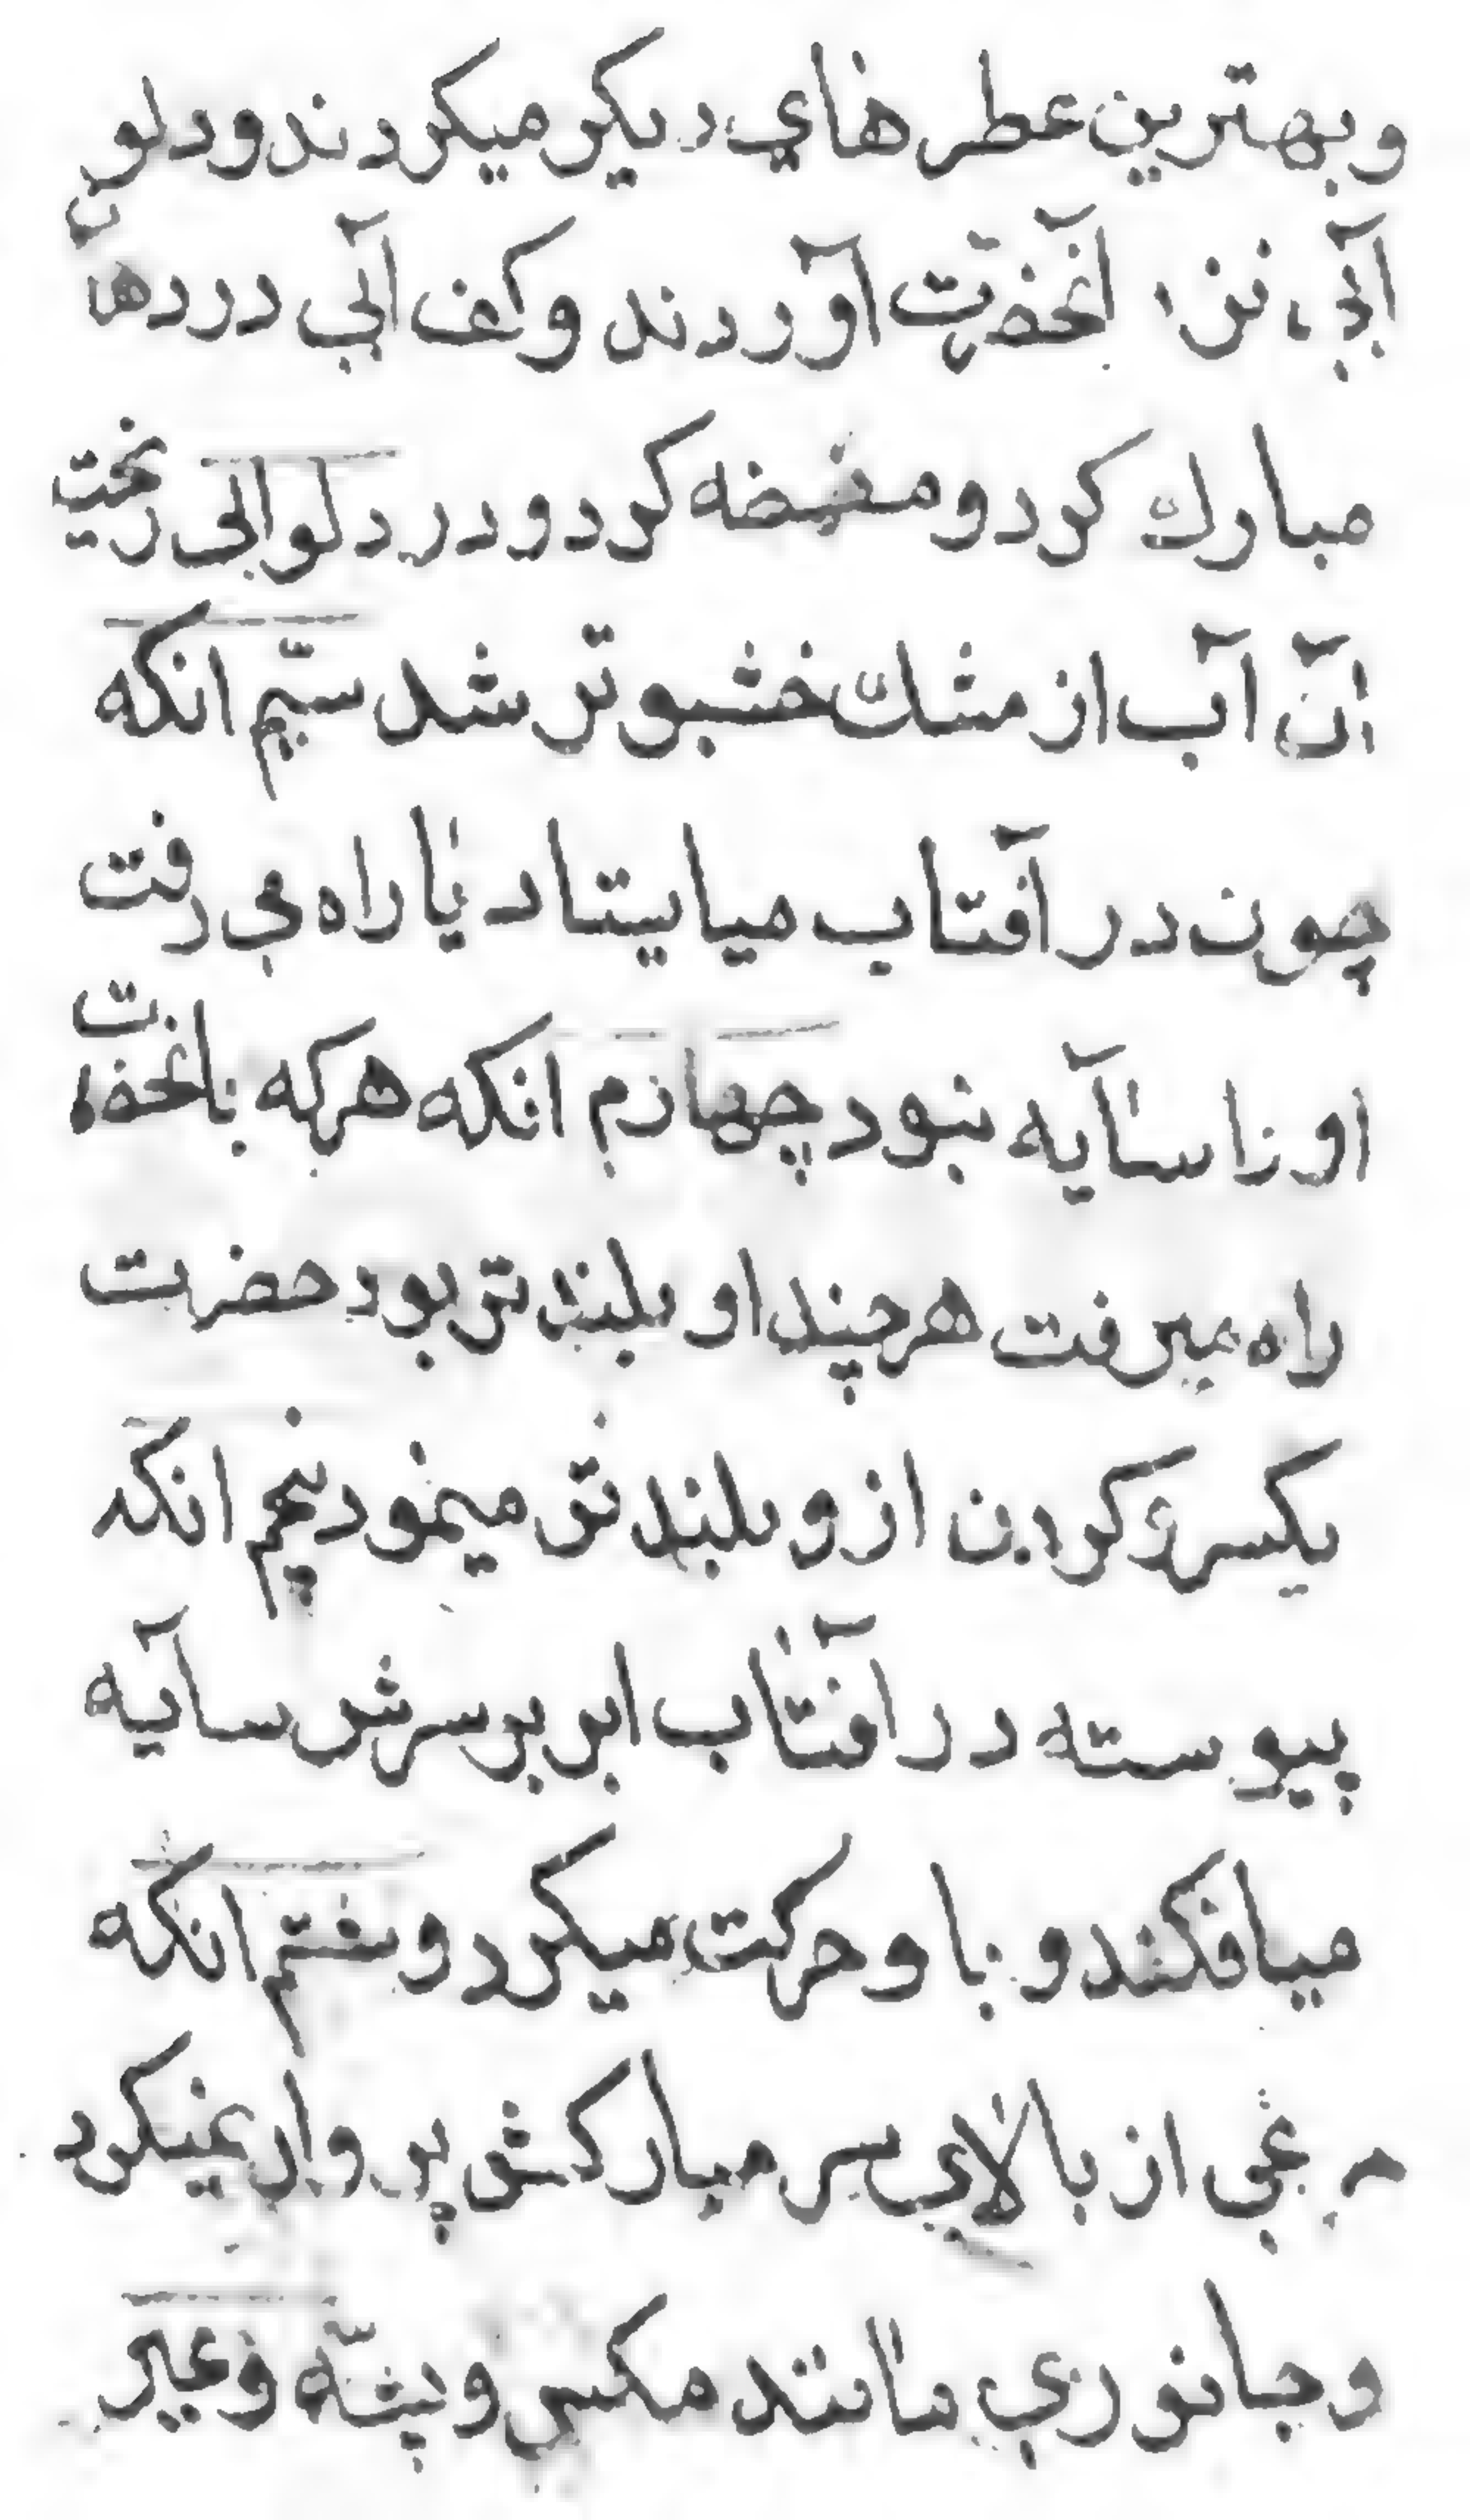 و بهترین عطرهاي دیکر میکردند و دلو
آبي نزد آنحضرت آوردند و کف آبي در دهان
مبارك کرد و مضمضه کرد و در دلو الی ریخت
آن آب از مشك خشبوتر شد سیّم انکه
چون در آفتاب میایستاد یا راه می رفت
او را سآیه نبود چهارم انکه هرکه باآنحضرت
راه میرفت هرچند او بلندتر بود حضرت
یکسر و کردن ازو بلندتر مینمود پنجم انکه
پیوسته در آفتاب ابر بر سرش سآیه
میافکند و با و حرکت میکرد و ششم انکه
مرغی از بالاي سر مبارکش پرواز نمیکرد
و جانوري مانند مکس و پشّه و غیر